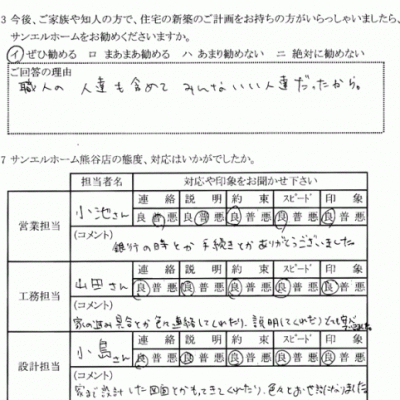 3 今後、ご家族や知人の方で、住宅の新築のご計画をお持ちの方がいらっしゃいましたら、
サンエルホームをお勧めくださいますか。
イ ぜひ勧める ロ まあまあ勧める ハ あまり勧めない ニ 絶対に勧めない
ご回答の理由
職人の人達も含めて みんないい人達だったから。
7 サンエルホーム熊谷店の態度、対応はいかがでしたか。
担当者名 対応や印象をお聞かせ下さい
営業担当 小池さん 連絡 説明 約束 スピード 印象
良 普 悪 良 普 悪 良 普 悪 良 普 悪 良 普 悪
(コメント)
銀行の時とか手続きとかありがとうございました
工務担当 山田さん 連絡 説明 約束 スピード 印象
良 普 悪 良 普 悪 良 普 悪 良 普 悪 良 普 悪
(コメント)
家の進み具合とか色々連絡してくれたり、説明してくれたり
設計担当 小島さん 連絡 説明 約束 スピード 印象
良 普 悪 良 普 悪 良 普 悪 良 普 悪 良 普 悪
(コメント)
家まで設計した図面とかもってきてくれたり、色々とお世話になりました